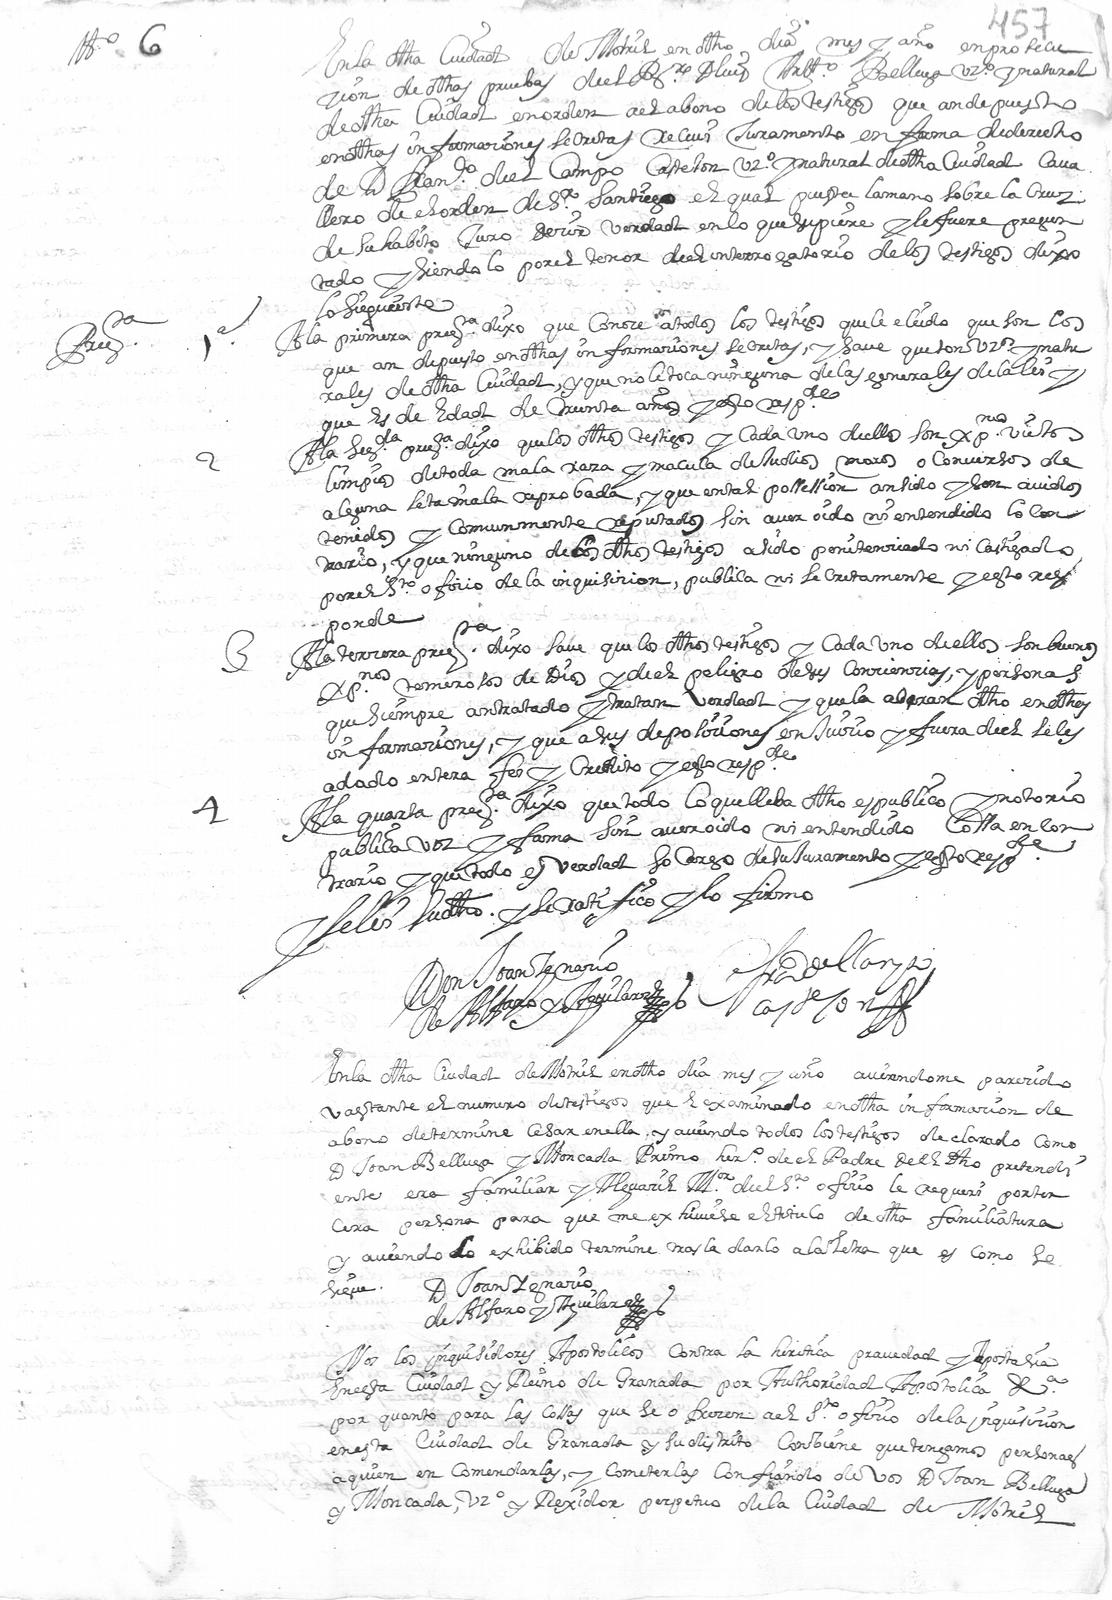 457
Nº 6
En la dha Ciudad de Motril en dho dia mes y año en prosecu
zion de dhas pruebas del Dr. D Luis Belluga vzº y natural
de dha Ciudad en orden al abono de los testigos que an depuesto
en dhas informaciones secretas Reciui Juramento en forma de derecho
de D Franco del Campo Castellon vzº y natural de dha Ciudad Caua
llero de el orden de Sr Santiago el qual puesta la mano sobre la Cruz
de su habito Juro decir verdad en lo que supiere y le fuere pregun
tado y siendolo por el tenor del interrogatorio de los testigos dixo
lo siguiente
Pregta 1ª A la primera pregta dixo que Conoce a todos los testigos que le e leido que son los
que an depuesto en dhas informaciones secretas, y saue que son vzos y natu
rales de dha Ciudad, y que no le toca ninguna de las generales de la lei y
que es de edad de treinta años y esto respde
2 A la segda pregta dixo que los dhos testigos y Cada uno de ellos son xpnos viejos
limpios de toda mala raza y macula de Judios moros o Conuersos de
alguna seta mala reprobada, y que en tal possession an sido y son auidos
tenidos y Comunmente reputados sin auer oido ni entendido lo con
trario, y que ninguno de los dhos testigos a sido penitenciado ni Castigado
por el Sto oficio de la inquisicion, publica ni secretamente y esto res
ponde
3 A la tercera pregta dixo saue que los dhos testigos y Cada uno de ellos son buenos
xpnos temerosos de Dios y del peligro de sus Conciencias, y personas
que siempre an tratado y tratan verdad y que la abran dho en dhas
informaciones, y que a sus deposiciones en Juicio y fuera del se les
a dado entera fee y Credito y esto respde
4 A la quarta pregta dixo que todo lo que lleba dho es publico y notorio
publica voz y fama sin auer oido ni entendido Cossa en con
trario y que todo es verdad so Cargo de su Juramento y esto respde
y se leio su dho. y se ratifico y lo firmo
Don Joan Ignacio
de Alfaro y Aguilar
Frco del Campo
Castellon
En la dha Ciudad de Motril en dho dia mes y año auiendome parecido
vastante el numero de testigos que e examinado en dha informacion de
abono determine Cesar en ella, y auiendo todos los testigos declarado como
D Joan Belluga y Moncada Primo herº de el Padre del dho pretendi
ente era familiar y Alguacil Mor del Sto oficio le requeri por ter
cera persona para que me exhiuiese el titulo de dha familiatura
y auiendolo exhibido termine trasladarlo a la letra que es como se
sigue.
D Joan Ignacio
de Alfaro y Aguilar
Nos los ynquisidores Apostolicos Contra la heretica prauedad y Apostasia
en esta Ciudad y Reino de Granada por Authoridad Apostolica &ª
por quanto para las Cossas que se ofrecen al Sto oficio de la ynquisicion
en esta Ciudad de Granada y su distrito Conbiene que tengamos personas
a quien encomendarlas, y cometerlas Confiando de vos D Joan Belluga
y Moncada, vzº y Rexidor perpetuo de la Ciudad de Motril